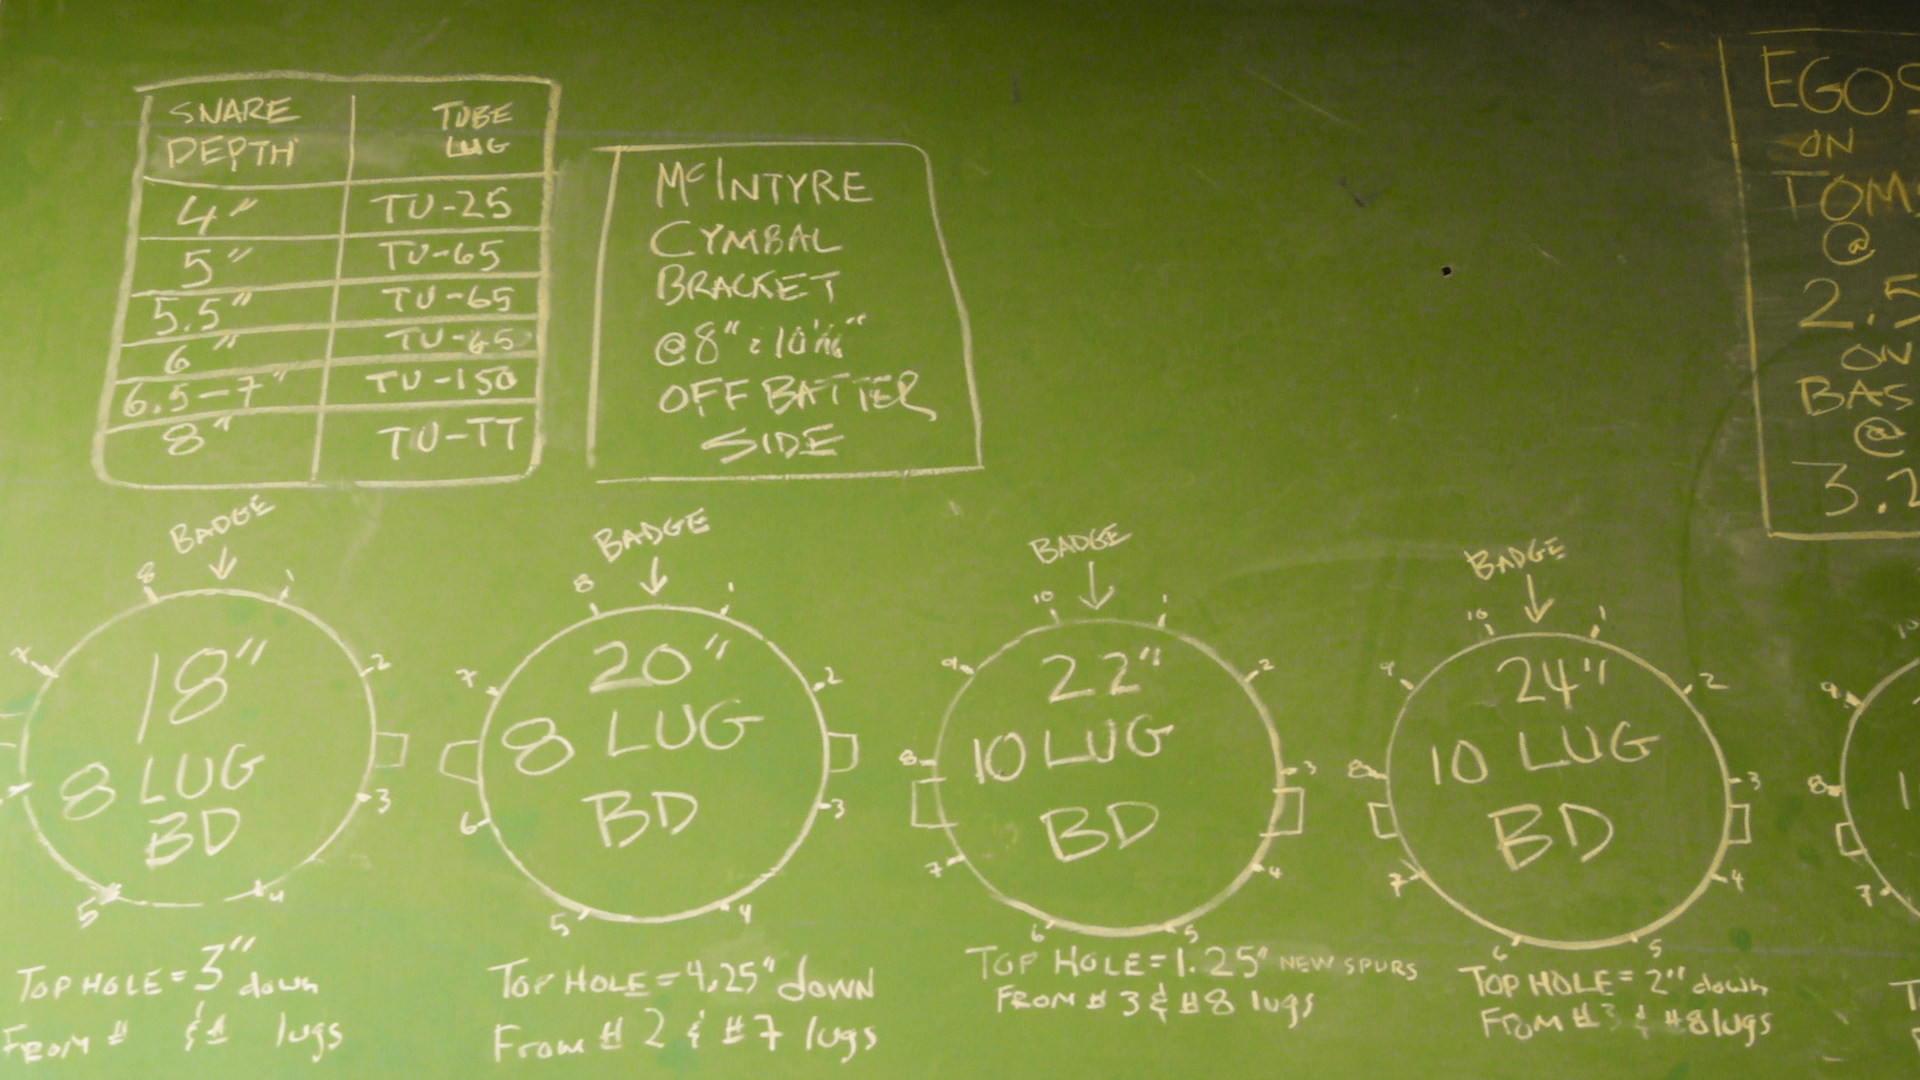 SNARE DEPTH TUBE LUG
4" TU-25
5" TU-65
5.5" TU-65
6" TU-65
6.5-7" TU-150
8" TU-TT
McINTYRE
CYMBAL
BRACKET
@8"
OFF BATTER
SIDE
EGOS
ON
TOMS
@
2.5
ON
BAS
@
3.2
BADGE
8 1
7 2
18"
8 LUG
BD
3
5 4
TOP HOLE = 3" down
FROM # & # lugs
BADGE
8 1
7 2
20"
8 LUG
BD
6 3
5 4
TOP HOLE = 4.25" down
From # 2 & #7 lugs
BADGE
10 1
9 2
22"
10 LUG
BD
8 3
7 4
6 5
TOP HOLE = 1.25" NEW SPURS
FROM # 3 & #8 lugs
BADGE
10 1
9 2
24"
10 LUG
BD
8 3
7 4
6 5
TOP HOLE = 2" down
FROM #3 & #8 lugs
10
9
8
7